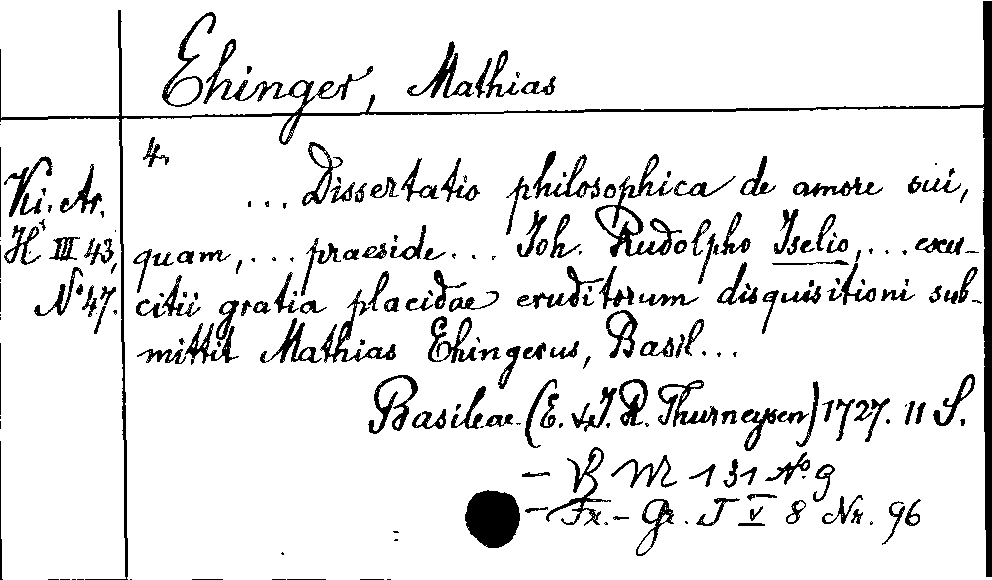 Ehinger, Mathias
4.
Ki. Ar.
H III 43,
No 47.
... Dissertatio philosophica de amore sui,
quam, ... praeside ... Joh. Rudolpho Iselio, ... exer-
citii gratia placidae eruditorum disquisitioni sub-
mittit Mathias Ehingerus, Basil...
Basileae (E. & J. R. Thurneysen) 1727. 11 S.
- B M 131 No. 9
- Fr. - Gr. J V 8 Nr. 96